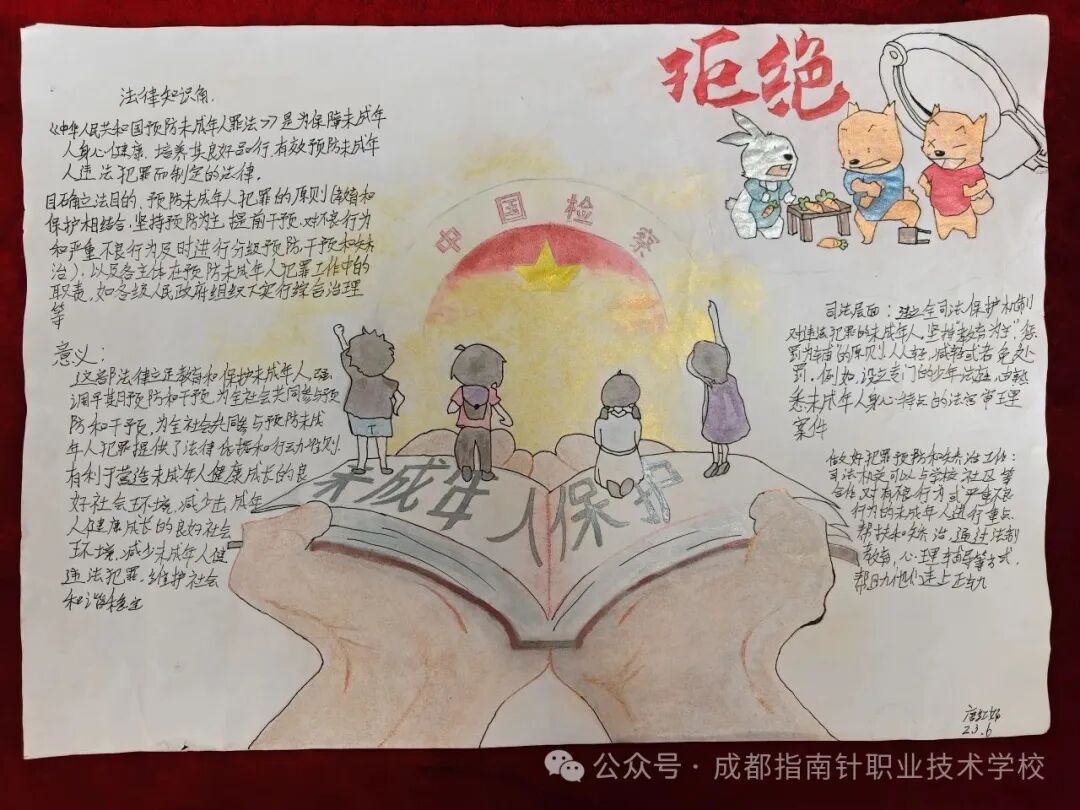 法律知识角.
《中华人民共和国预防未成年人罪法》是为保障未成年
人身心健康.培养其良好品行,有效预防未成年
人违法犯罪而制定的法律.
目确立法目的、预防未成年人犯罪的原则(教育和
保护相结合,坚持预防为主,提前干预,对不良行为
和严重不良行为及时进行分级预防干预和矫
治).以及各主体在预防未成年人犯罪工作中的
职责,如各级人民政府组织下实行综合治理
等
意义:
这部法律立足教育和保护未成年人,强
调早期预防和干预,为全社会共同参与预
防和干预,为全社会共同参与预防未成
年人犯罪提供了法律依据和行动准则.
有利于营造未成年人健康成长的良
好社会环境,减少未成年
人健康成长的良好社会
环境,减少未成年人健
违法犯罪.维护社会
和谐稳定
中国检察
未成年人保护
拒绝
司法层面:建立全司法保护机制
对违法犯罪的未成年人,坚持"教育为主"惩
罚为辅"的原则从轻,减轻或者免处
罚.例如,设立专门的少年法庭,由熟
悉未成年人身心特点的法官审理
案件
做好犯罪预防和矫治工作:
司法机关可以与学校社区等
合作,对有不良行方式严重不良
行为的未成年人进行重点
帮扶和矫治,通过法制
教育,心理辅导等方式,
帮助他们走上正轨
23.6
公众号·成都指南针职业技术学校